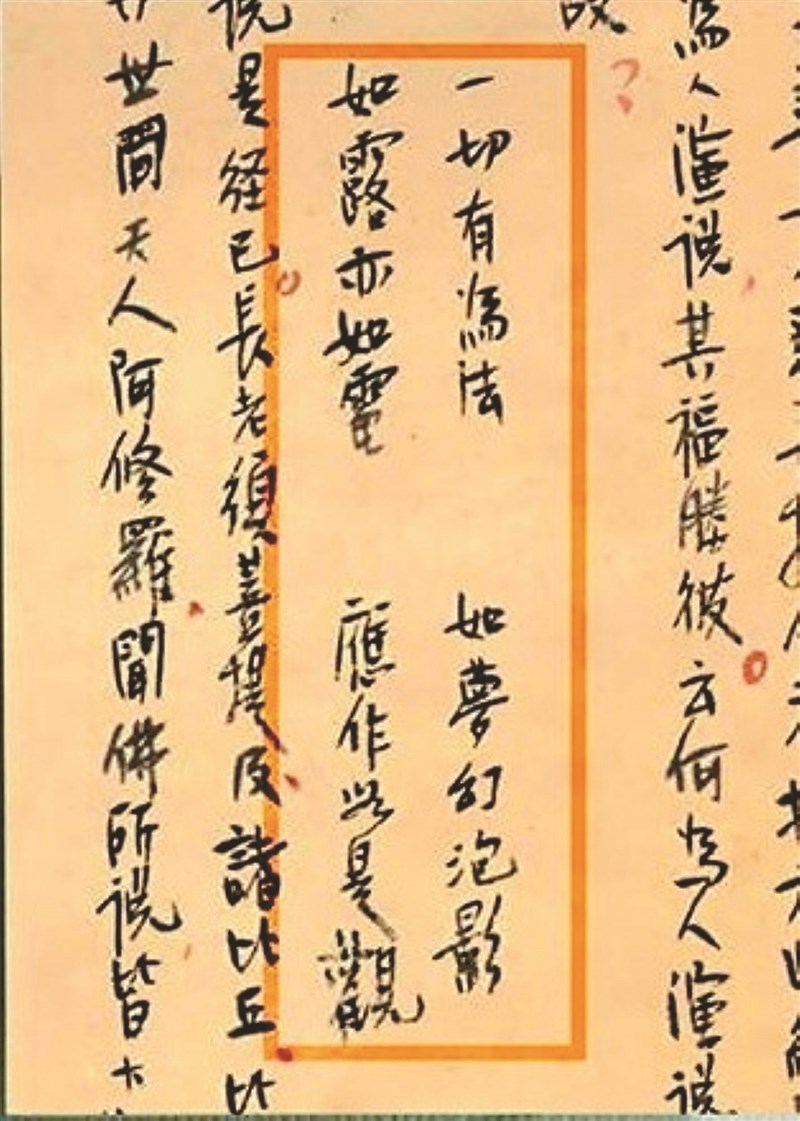 為人演說其福勝彼云何為人演說
故
一切有為法 如夢幻泡影
如露亦如電 應作如是觀
說是経已長老須菩提及諸比丘比
世間天人阿修羅聞佛所說皆大